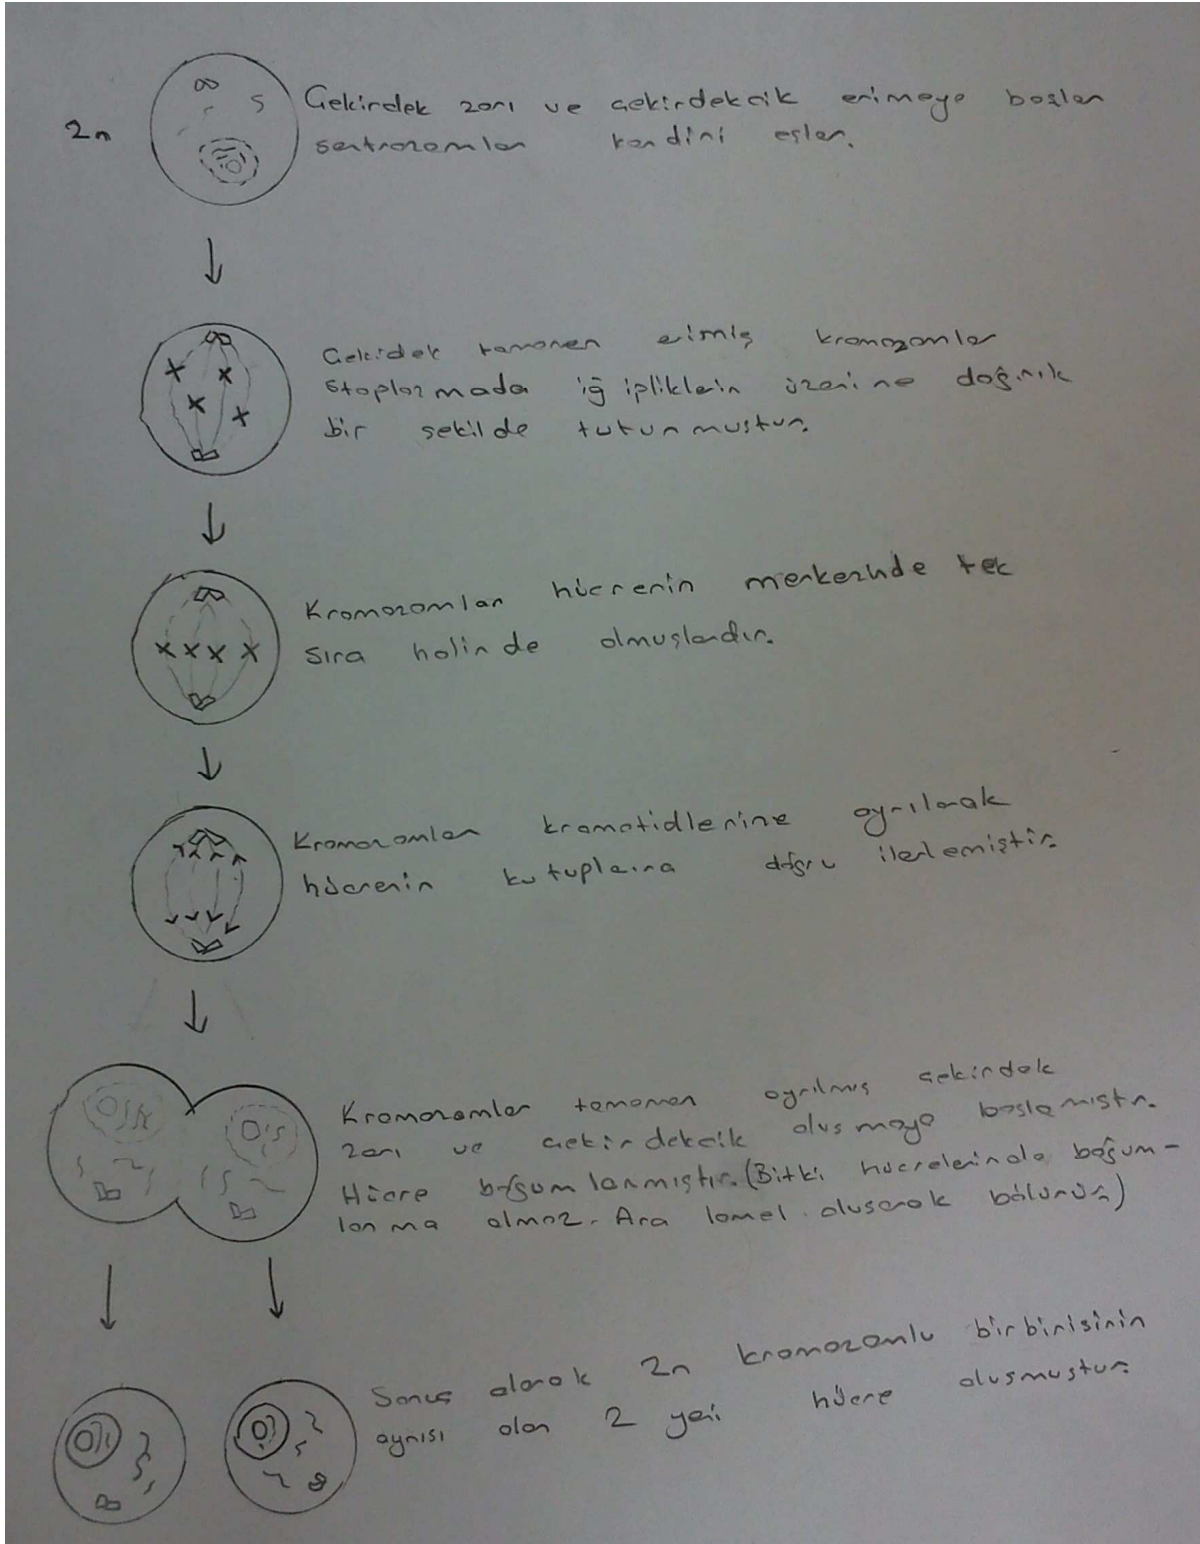 2n
Çekirdek zarı ve çekirdekcik erimeye başlar
sentrozomlar kendini eşler.
Çekidek tamamen erimiş kromozomlar
stoplazmada iğ ipliklerin üzerine dağınık
bir sekilde tutunmustur.
Kromozomlar hücrenin merkezinde tek
sıra halinde olmuşlardır.
Kromozomlar kromotidlerine ayrılarak
hücrenin kutuplarına doğru ilerlemiştir.
Kromozomlar tamamen ayrılmış çekirdek
zarı ve çekirdekcik olusmaya baslamıstır.
Hücre boğumlanmıştır. (Bitki hücrelerinde boğum-
lanma olmaz. Ara lamel oluşarak bölünür.)
Sonuç olarak 2n kromozomlu birbirisinin
aynısı olan 2 yeni hücre olusmustur.